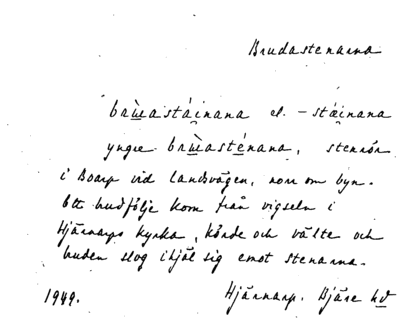 Brudastenarna
brɯ̀astáinana el. -stáinana
yngre brɯ̀asténana, stenrör
i Boarp vid landsvägen, norr om byn.
Ett brudfölje kom från vigseln i
Hjärnarps kyrka, körde och välte och
bruden slog ihjäl sig emot stenarna.
1949. Hjärnarp. Bjäre hd